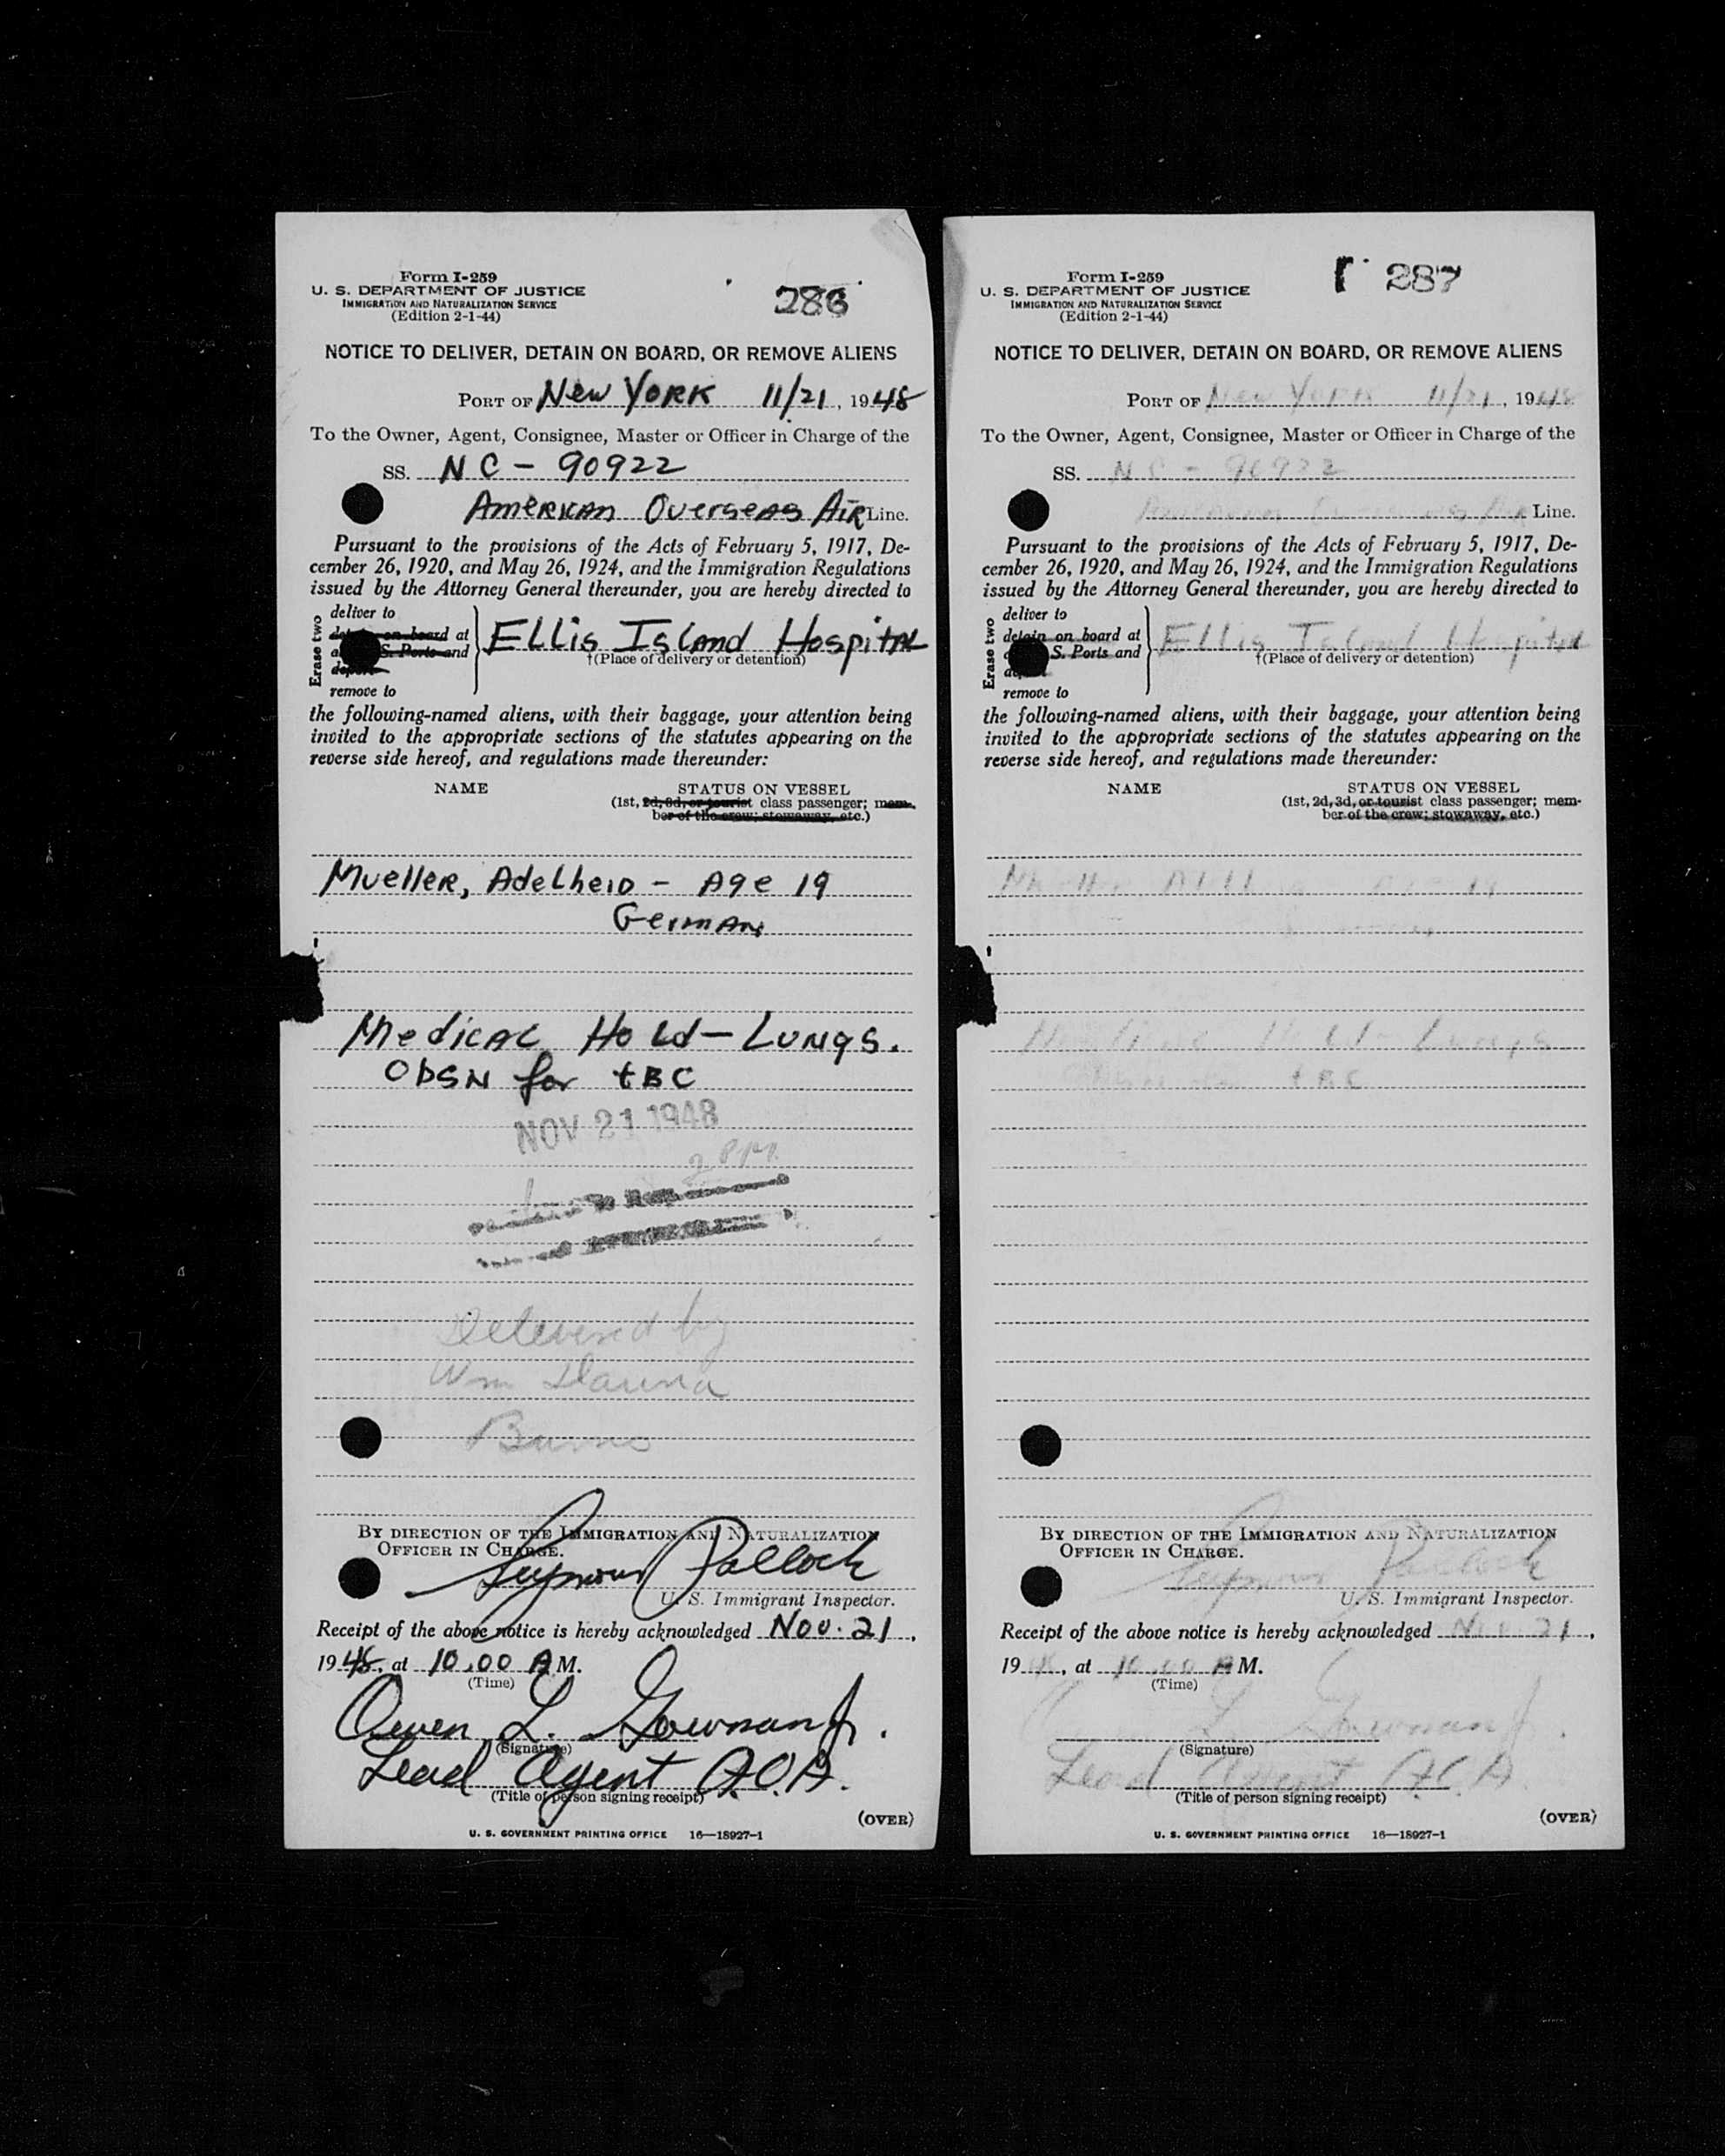 Form I-259
U. S. DEPARTMENT OF JUSTICE
IMMIGRATION AND NATURALIZATION SERVICE
(Edition 2-1-44)
286
NOTICE TO DELIVER, DETAIN ON BOARD, OR REMOVE ALIENS
PORT OF New York 11/21, 1948
To the Owner, Agent, Consignee, Master or Officer in Charge of the
SS. NC-90922
American Overseas Air Line.
Pursuant to the provisions of the Acts of February 5, 1917, De-
cember 26, 1920, and May 26, 1924, and the Immigration Regulations
issued by the Attorney General thereunder, you are hereby directed to
Erase two
deliver to
on board at
S. Ports and
remove to
Ellis Island Hospital
†(Place of delivery or detention)
the following-named aliens, with their baggage, your attention being
invited to the appropriate sections of the statutes appearing on the
reverse side hereof, and regulations made thereunder:
NAME STATUS ON VESSEL
(1st, 2d, 3d, or tourist class passenger; mem-
ber of the crew; stowaway, etc.)
Mueller, Adelheid - Age 19
German
Medical Hold - Lungs.
OBSN for tBC
NOV 21 1948
2 PM
Delivered by
Wm
Burns
BY DIRECTION OF THE IMMIGRATION AND NATURALIZATION
OFFICER IN CHARGE.
Seymour Pollock
U. S. Immigrant Inspector.
Receipt of the above notice is hereby acknowledged Nov. 21,
1948, at 10.00 A M.
(Time)
Owen L. Gownan Jr.
(Signature)
Lead Agent A.O.A.
(Title of person signing receipt)
(OVER)
U. S. GOVERNMENT PRINTING OFFICE 16—18927-1
Form I-259
U. S. DEPARTMENT OF JUSTICE
IMMIGRATION AND NATURALIZATION SERVICE
(Edition 2-1-44)
287
NOTICE TO DELIVER, DETAIN ON BOARD, OR REMOVE ALIENS
PORT OF New York 11/21, 1948
To the Owner, Agent, Consignee, Master or Officer in Charge of the
SS. NC - 90922
American Overseas Air Line.
Pursuant to the provisions of the Acts of February 5, 1917, De-
cember 26, 1920, and May 26, 1924, and the Immigration Regulations
issued by the Attorney General thereunder, you are hereby directed to
Erase two
deliver to
detain on board at
S. Ports and
remove to
Ellis Island Hospital
†(Place of delivery or detention)
the following-named aliens, with their baggage, your attention being
invited to the appropriate sections of the statutes appearing on the
reverse side hereof, and regulations made thereunder:
NAME STATUS ON VESSEL
(1st, 2d, 3d, or tourist class passenger; mem-
ber of the crew; stowaway, etc.)
19
Hold - Lungs
tBC
BY DIRECTION OF THE IMMIGRATION AND NATURALIZATION
OFFICER IN CHARGE.
Seymour Pollock
U. S. Immigrant Inspector.
Receipt of the above notice is hereby acknowledged Nov. 21,
1948, at 10.00 A M.
(Time)
L. Gownan Jr.
(Signature)
Lead Agent A.O.A.
(Title of person signing receipt)
(OVER)
U. S. GOVERNMENT PRINTING OFFICE 16—18927-1